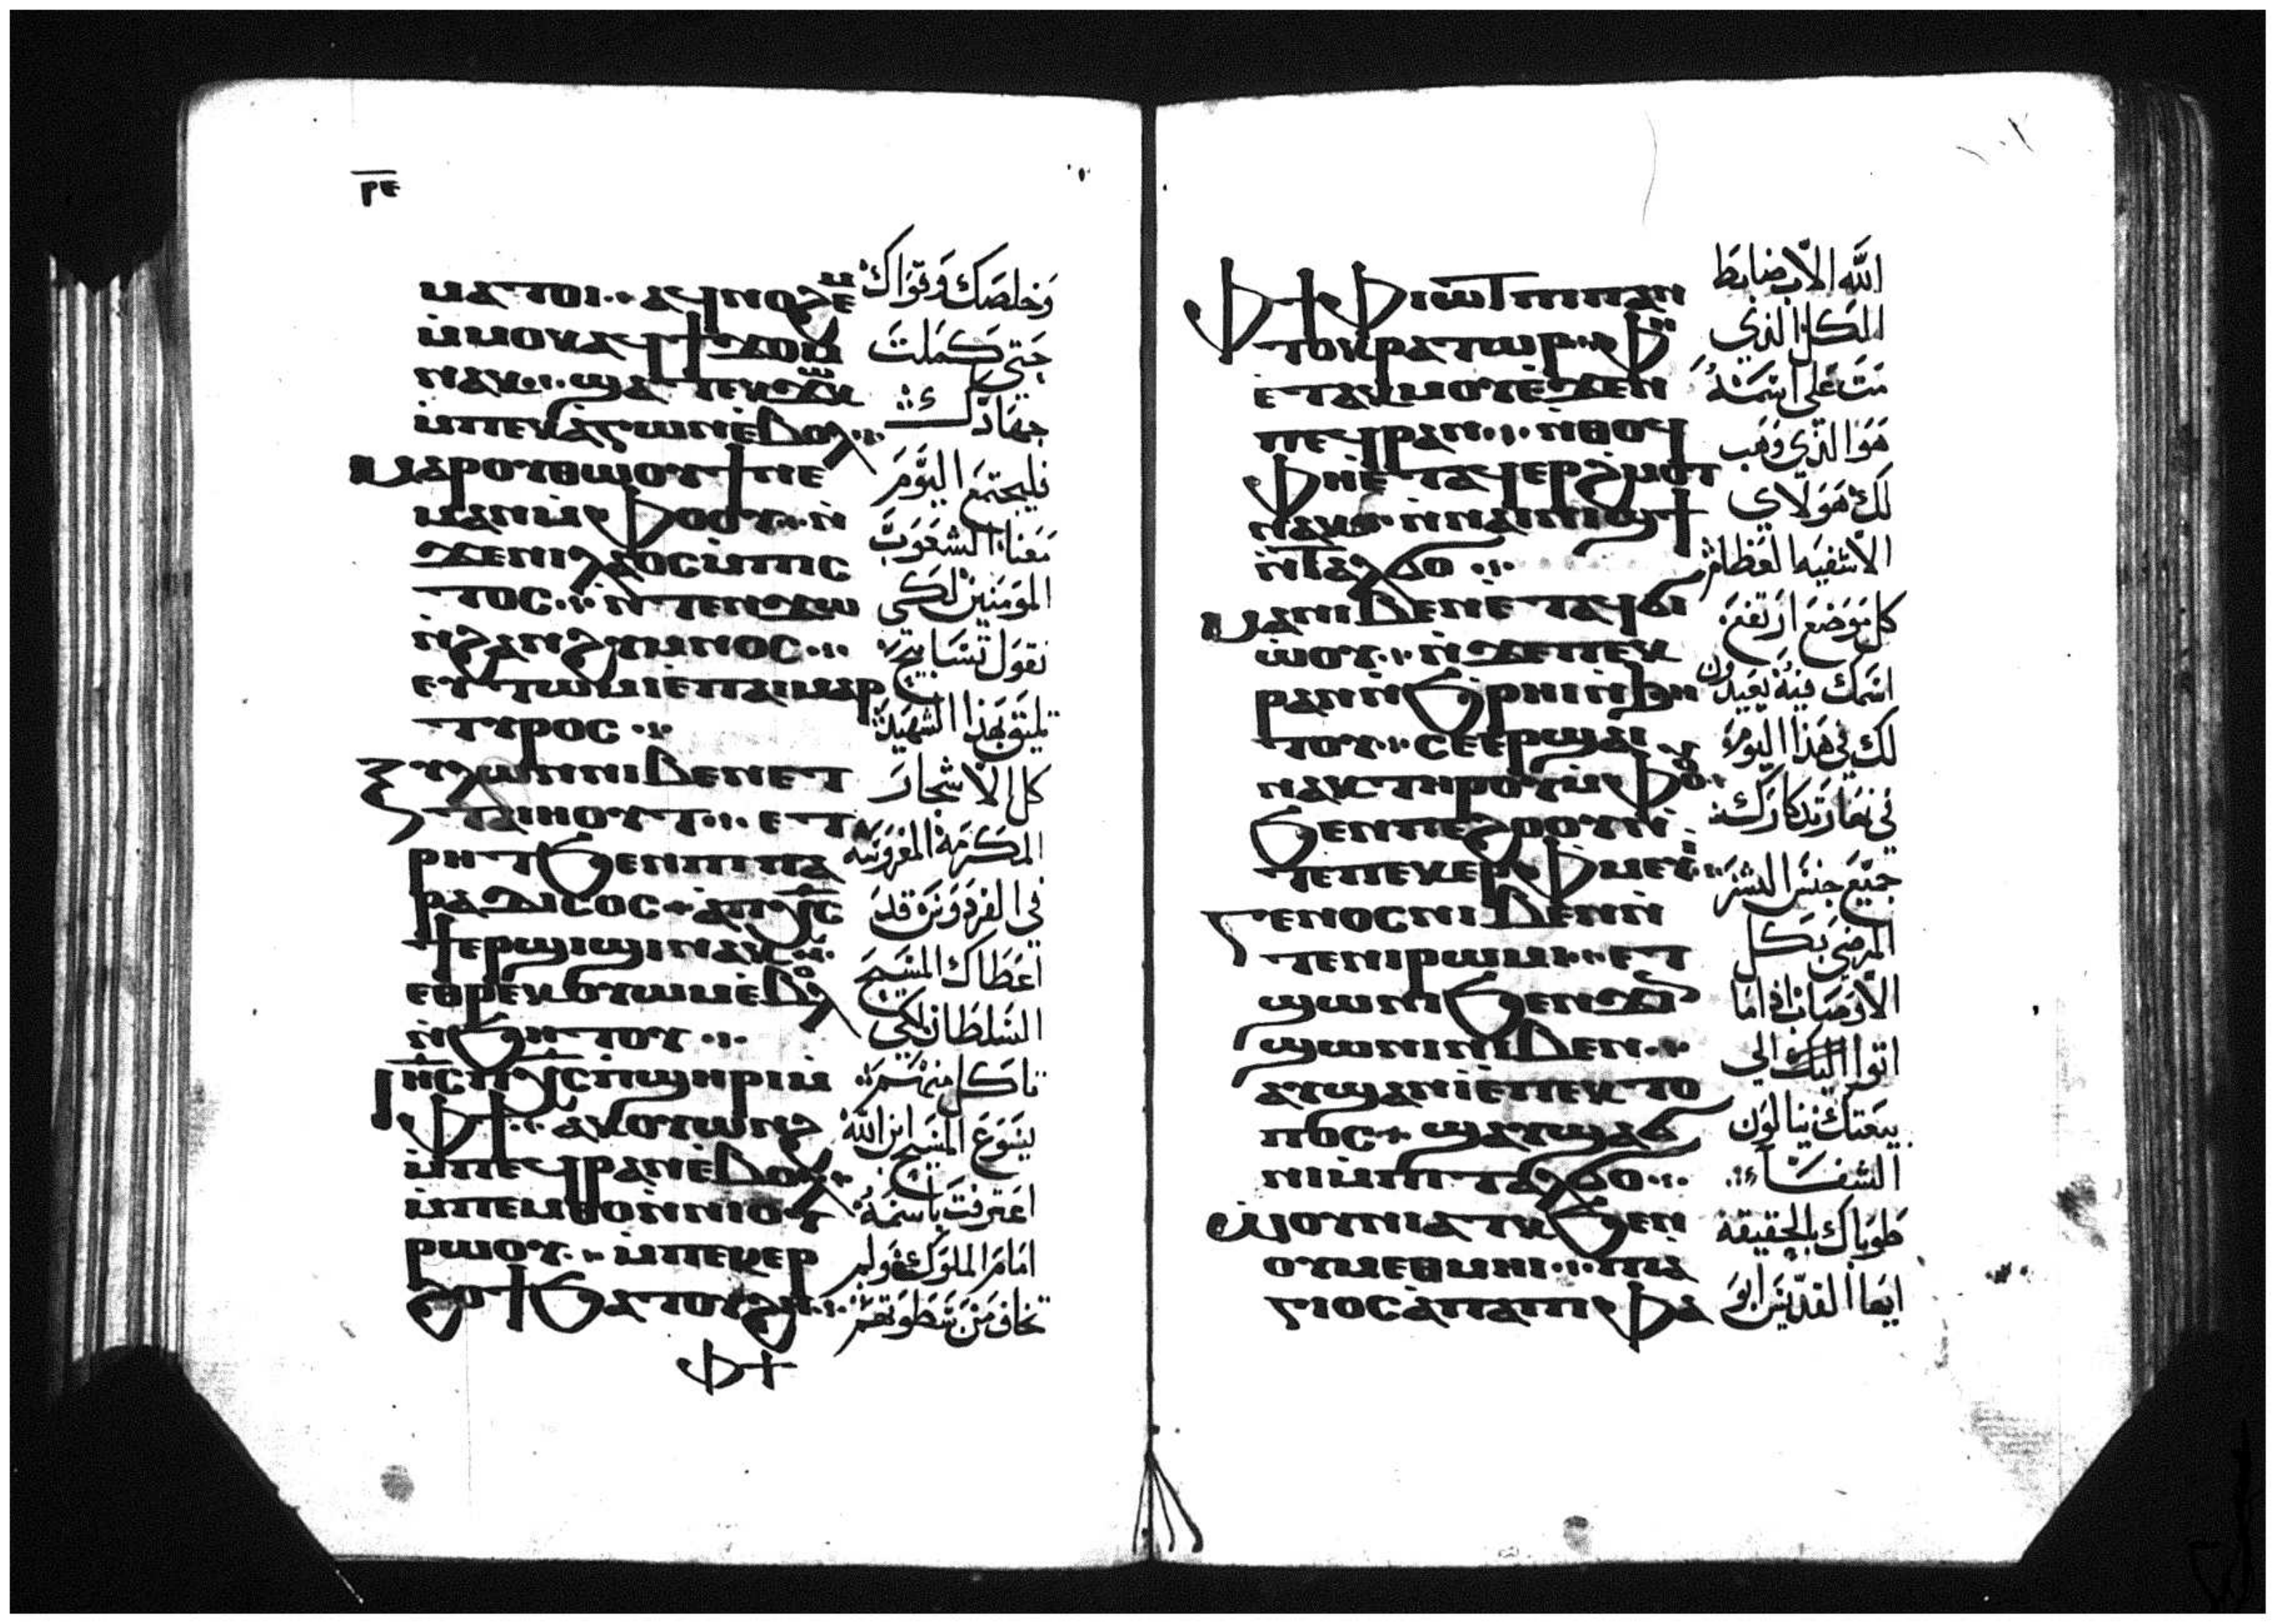 ⲣⲉ
ⲙⲁⲧⲟⲓ ⁖ ⲁϥⲛⲟϩⲉⲙ
ⲙ̀ⲙⲟⲕ ⲁϥϯϫⲟⲙ
ⲛⲁⲕ ⁖ ϣⲁ ⲧⲉⲕϫⲱⲕ
ⲙ̀ⲡⲉⲕⲁⲅⲱⲛ ⲉ̀ⲃⲟⲗ ⁖
ⲙⲁⲣⲟⲩⲑⲱⲟⲩϯ ⲛⲉ
ⲙⲁⲛ ⲙ̀ⲫⲟⲟⲩ ⁖ ⲛ̀
ϫⲉ ⲛⲓⲗⲁⲟⲥ ⲙ̀ⲡⲓⲥ
ⲧⲟⲥ ⁖ ⲛ̀ⲧⲉⲛϫⲱ
ⲛ̀ϩⲁⲛϩⲩⲙⲛⲟⲥ ⁖
ⲉⲩⲧⲱⲙⲓ ⲉⲡⲁⲓⲙⲁⲣ
ⲧⲩⲣⲟⲥ ⁖
ⲝⲩⲗⲱⲛ ⲛⲓⲃⲉⲛ ⲉⲧ
ⲧⲁⲓⲏⲟⲩⲧ ⁖ ⲉⲧ
ⲣⲏⲧ ϧⲉⲛ ⲡⲓⲡⲁ
ⲣⲁⲇⲓⲥⲟⲥ ⁖ ⲁ̀ⲡⲭ̅ⲥ̅
ϯⲉⲣϣⲓϣⲓ ⲛⲁⲕ ⁖
ⲉⲑⲣⲉⲕⲟⲩⲱⲙ ⲉ̀ⲃⲟⲗ
ⲛ̀ϧⲏⲧⲟⲩ ⁖
ⲓⲏ̅ⲥ̅ ⲡⲭ̅ⲥ̅ ⲡϣⲏⲣⲓ ⲙ̀
ⲫϯ ⁖ ⲁⲕⲟⲩⲱⲛϩ
ⲙ̀ⲡⲉϥⲣⲁⲛ ⲉ̀ⲃⲟⲗ ⁖
ⲙ̀ⲡⲉⲙⲑⲟ ⲛ̀ⲛⲓⲟⲩ
ⲣⲱⲟⲩ ⁖ ⲙ̀ⲡⲉⲕⲉⲣ
ϩⲟϯ ϧⲁⲧⲟⲩϩⲏ ⁖
ⲫϯ
وخلصك وقواك
حتي كملت
جهادك
فليجتمع اليوم
معنا الشعوب
المومنين لكي
نقول تسابيح
تليق بهذا الشهيد
كل الاشجار
المكرمة المغروسه
في الفردوس قد
اعطاك المسيح
السلطان لكي
تاكل منهم
يسوع المسيح ابن الله
اعترفت باسمه
امام الملوك ولم
تخاف من سطوتهم
ⲫϯ ⲫⲓⲱⲧ ⲡⲓⲡⲁⲛ
ⲧⲟⲕⲣⲁⲧⲱⲣ ⁖ ⲫⲏ
ⲉⲧⲁⲕⲙⲟⲩ ⲉ̀ϫⲉⲛ
ⲡⲉϥⲣⲁⲛ ⁖ ⲛ̀ⲑⲟϥ
ⲫⲏ ⲉ̀ⲧⲁϥⲉⲣϩⲙⲟⲧ
ⲛⲁⲕ ⁖ ⲛ̀ⲛⲁⲓⲛⲓϣϯ
ⲛ̀ⲧⲁⲗϭⲟ ⁖
ⲙⲁⲓ ⲛⲓⲃⲉⲛ ⲉⲧⲁϥϭⲓ
ⲱⲟⲩ ⁖ ⲛ̀ϫⲉ ⲡⲉⲕ
ⲣⲁⲛ ⲛ̀ϧⲣⲏⲓ ⲛ̀ϧⲏ
ⲧⲟⲩ ⁖ ⲥⲉⲉⲣϣⲁⲓ
ⲛⲁⲕ ⲧⲏⲣⲟⲩ ⲙ̀ⲫⲟⲟⲩ
ϧⲉⲛ ⲡⲉϩⲟⲟⲩ ⲛ̀
ⲧⲉ ⲡⲉⲕⲉⲣⲫⲙⲉⲩⲓ ⁖
ⲅⲉⲛⲟⲥ ⲛⲓⲃⲉⲛ ⲛ̀
ⲧⲉ ⲛⲓⲣⲱⲙⲓ ⁖ ⲉⲧ
ϣⲱⲛⲓ ϧⲉⲛ ϫⲓⲛ
ϣⲱⲛⲓ ⲛⲓⲃⲉⲛ ⁖
ⲁⲩϣⲁⲛⲓ̀ ⲉ̀ⲡⲉⲕⲧⲟ
ⲡⲟⲥ ⁖ ϣⲁⲩϣⲁϭ
ⲛⲓ ⲙ̀ⲡⲓⲧⲁⲗϭⲟ ⁖
ⲱⲟⲩⲛⲓⲁⲧⲕ ϧⲉⲛ
ⲟⲩⲙⲉⲑⲙⲏⲓ ⁖ ⲡⲓⲁ̀
ⲅⲓⲟⲥ ⲁ̀ⲡⲁ ⲡⲓⲫⲁ
الله الاب ضابط
الكل الذي
مت علي اسمه
هو الذي وهب
لك هولاي
الاشفيه العظام
كل موضع ارتفع
اسمك فيه يعيدون
لك في هذا اليوم
في نهار تذكارك
جميع جنس البشر
المرضي بكل
الاوصاب اذا ما
اتوا اليك الي
بيعتك ينالون
الشفاء
طوباك بالحقيقة
ايها القديس ابو